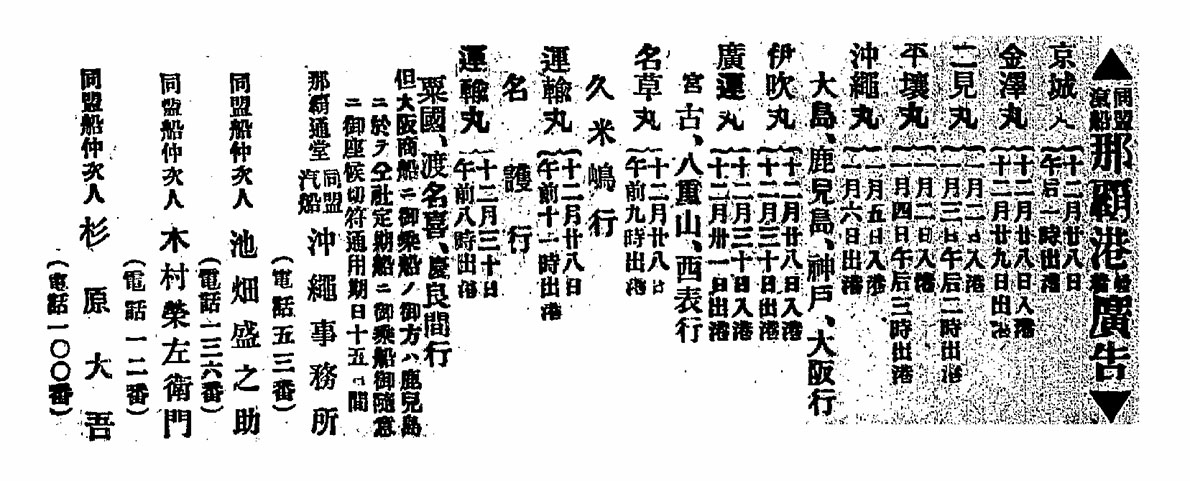 ▲同盟滊船那覇港廣告▼
京城丸 十二月廿八日午后一時出港
金澤丸 十二月廿八日入港十二月廿九日出港
二見丸 一月二日入港一月三日午后二時出港
平壤丸 一月二日入港一月四日午后三時出港
沖繩丸 一月五日入港一月六日出港
大島、鹿兒島、神戸、大阪行
伊吹丸 十二月廿八日入港十二月三十日出港
廣運丸 十二月三十日入港十二月卅一日出港
宮古、八重山、西表行
名草丸 十二月廿八日午前九時出港
久米嶋行
運輸丸 十二月廿八日午前十一時出港
名護行
運輸丸 十二月三十日午前八時出港
粟國、渡名喜、慶良間行
但大阪商船ニ御乘船ノ御方ハ鹿兒島
ニ於テ仝社定期船ニ御乘船御隨意
ニ御座候切符通用期日十五日間
那覇通堂 同盟汽船 沖繩事務所
(電話五三番)
同盟船仲次人 池畑盛之助
(電話一三六番)
同盟船仲次人 木村榮左衛門
(電話一二番)
同盟船仲次人 杉原大吾
(電話一〇〇番)